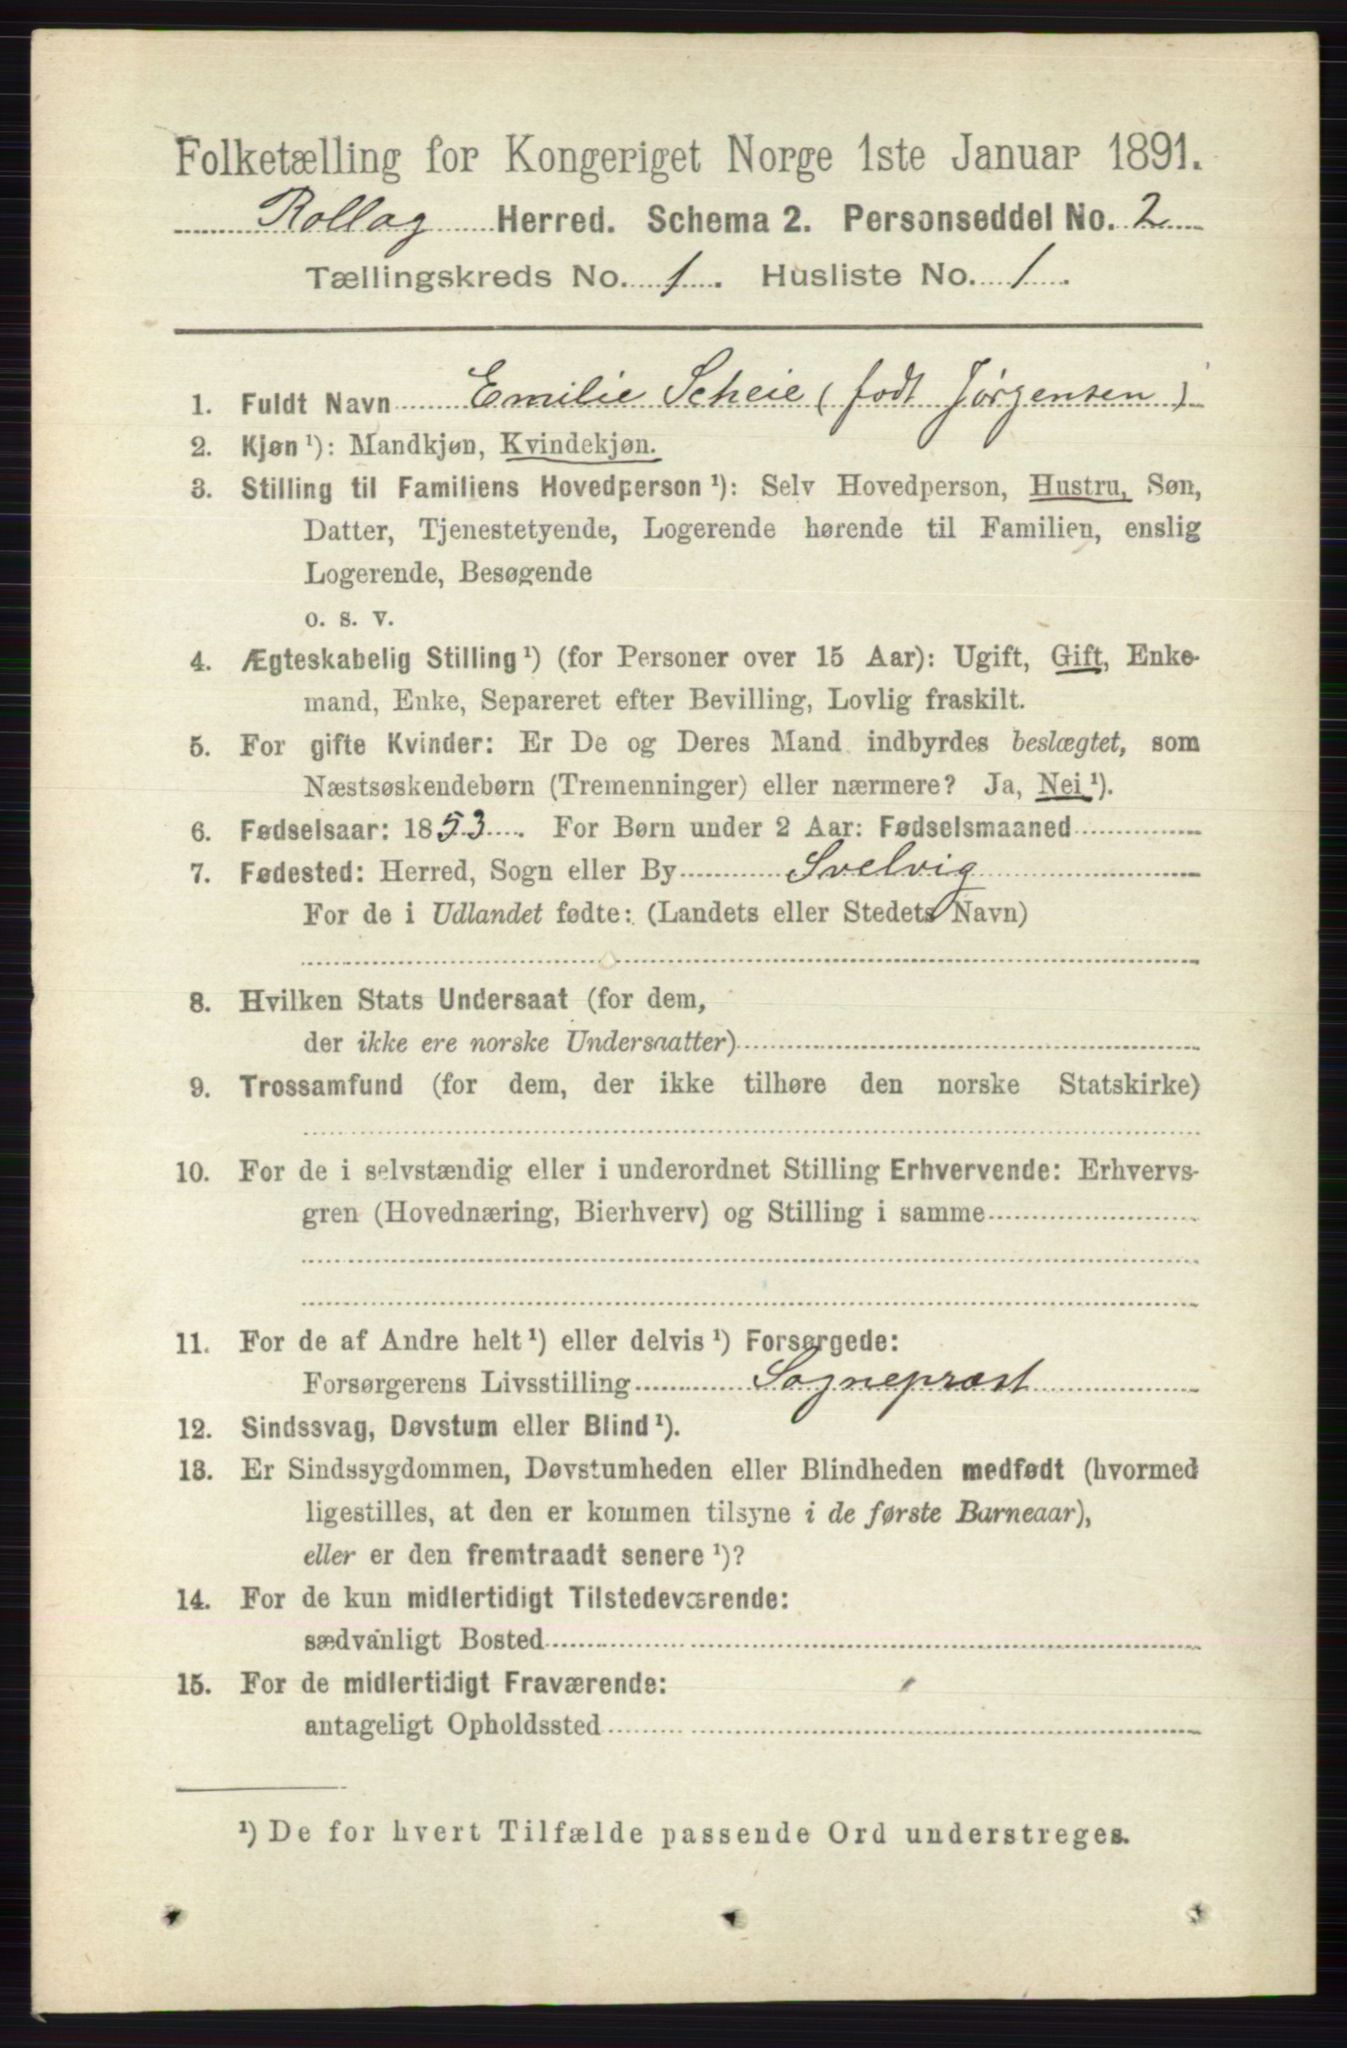 Folketælling for Kongeriget Norge 1ste Januar 1891.
Rollag Herred. Schema 2. Personseddel No. 2
Tællingskreds No. 1. Husliste No. 1.
1. Fuldt Navn Emilie Scheie (født Jørgensen)
2. Kjøn¹): Mandkjøn, Kvindekjøn.
3. Stilling til Familiens Hovedperson¹): Selv Hovedperson, Hustru, Søn,
Datter, Tjenestetyende, Logerende hørende til Familien, enslig
Logerende, Besøgende
o. s. v.
4. Ægteskabelig Stilling¹) (for Personer over 15 Aar): Ugift, Gift, Enke-
mand, Enke, Separeret efter Bevilling, Lovlig fraskilt.
5. For gifte Kvinder: Er De og Deres Mand indbyrdes beslægtet, som
Næstsøskendebørn (Tremenninger) eller nærmere? Ja, Nei¹).
6. Fødselsaar: 1853. For Børn under 2 Aar: Fødselsmaaned
7. Fødested: Herred, Sogn eller By Svelvig
For de i Udlandet fødte: (Landets eller Stedets Navn)
8. Hvilken Stats Undersaat (for dem,
der ikke ere norske Undersaatter)
9. Trossamfund (for dem, der ikke tilhøre den norske Statskirke)
10. For de i selvstændig eller i underordnet Stilling Erhvervende: Erhvervs-
gren (Hovednæring, Bierhverv) og Stilling i samme
11. For de af Andre helt¹) eller delvis¹) Forsørgede:
Forsørgerens Livsstilling Sognepræst
12. Sindssvag, Døvstum eller Blind¹).
13. Er Sindssygdommen, Døvstumheden eller Blindheden medfødt (hvormed
ligestilles, at den er kommen tilsyne i de første Barneaar),
eller er den fremtraadt senere¹)?
14. For de kun midlertidigt Tilstedeværende:
sædvanligt Bosted
15. For de midlertidigt Fraværende:
antageligt Opholdssted
¹) De for hvert Tilfælde passende Ord understreges.